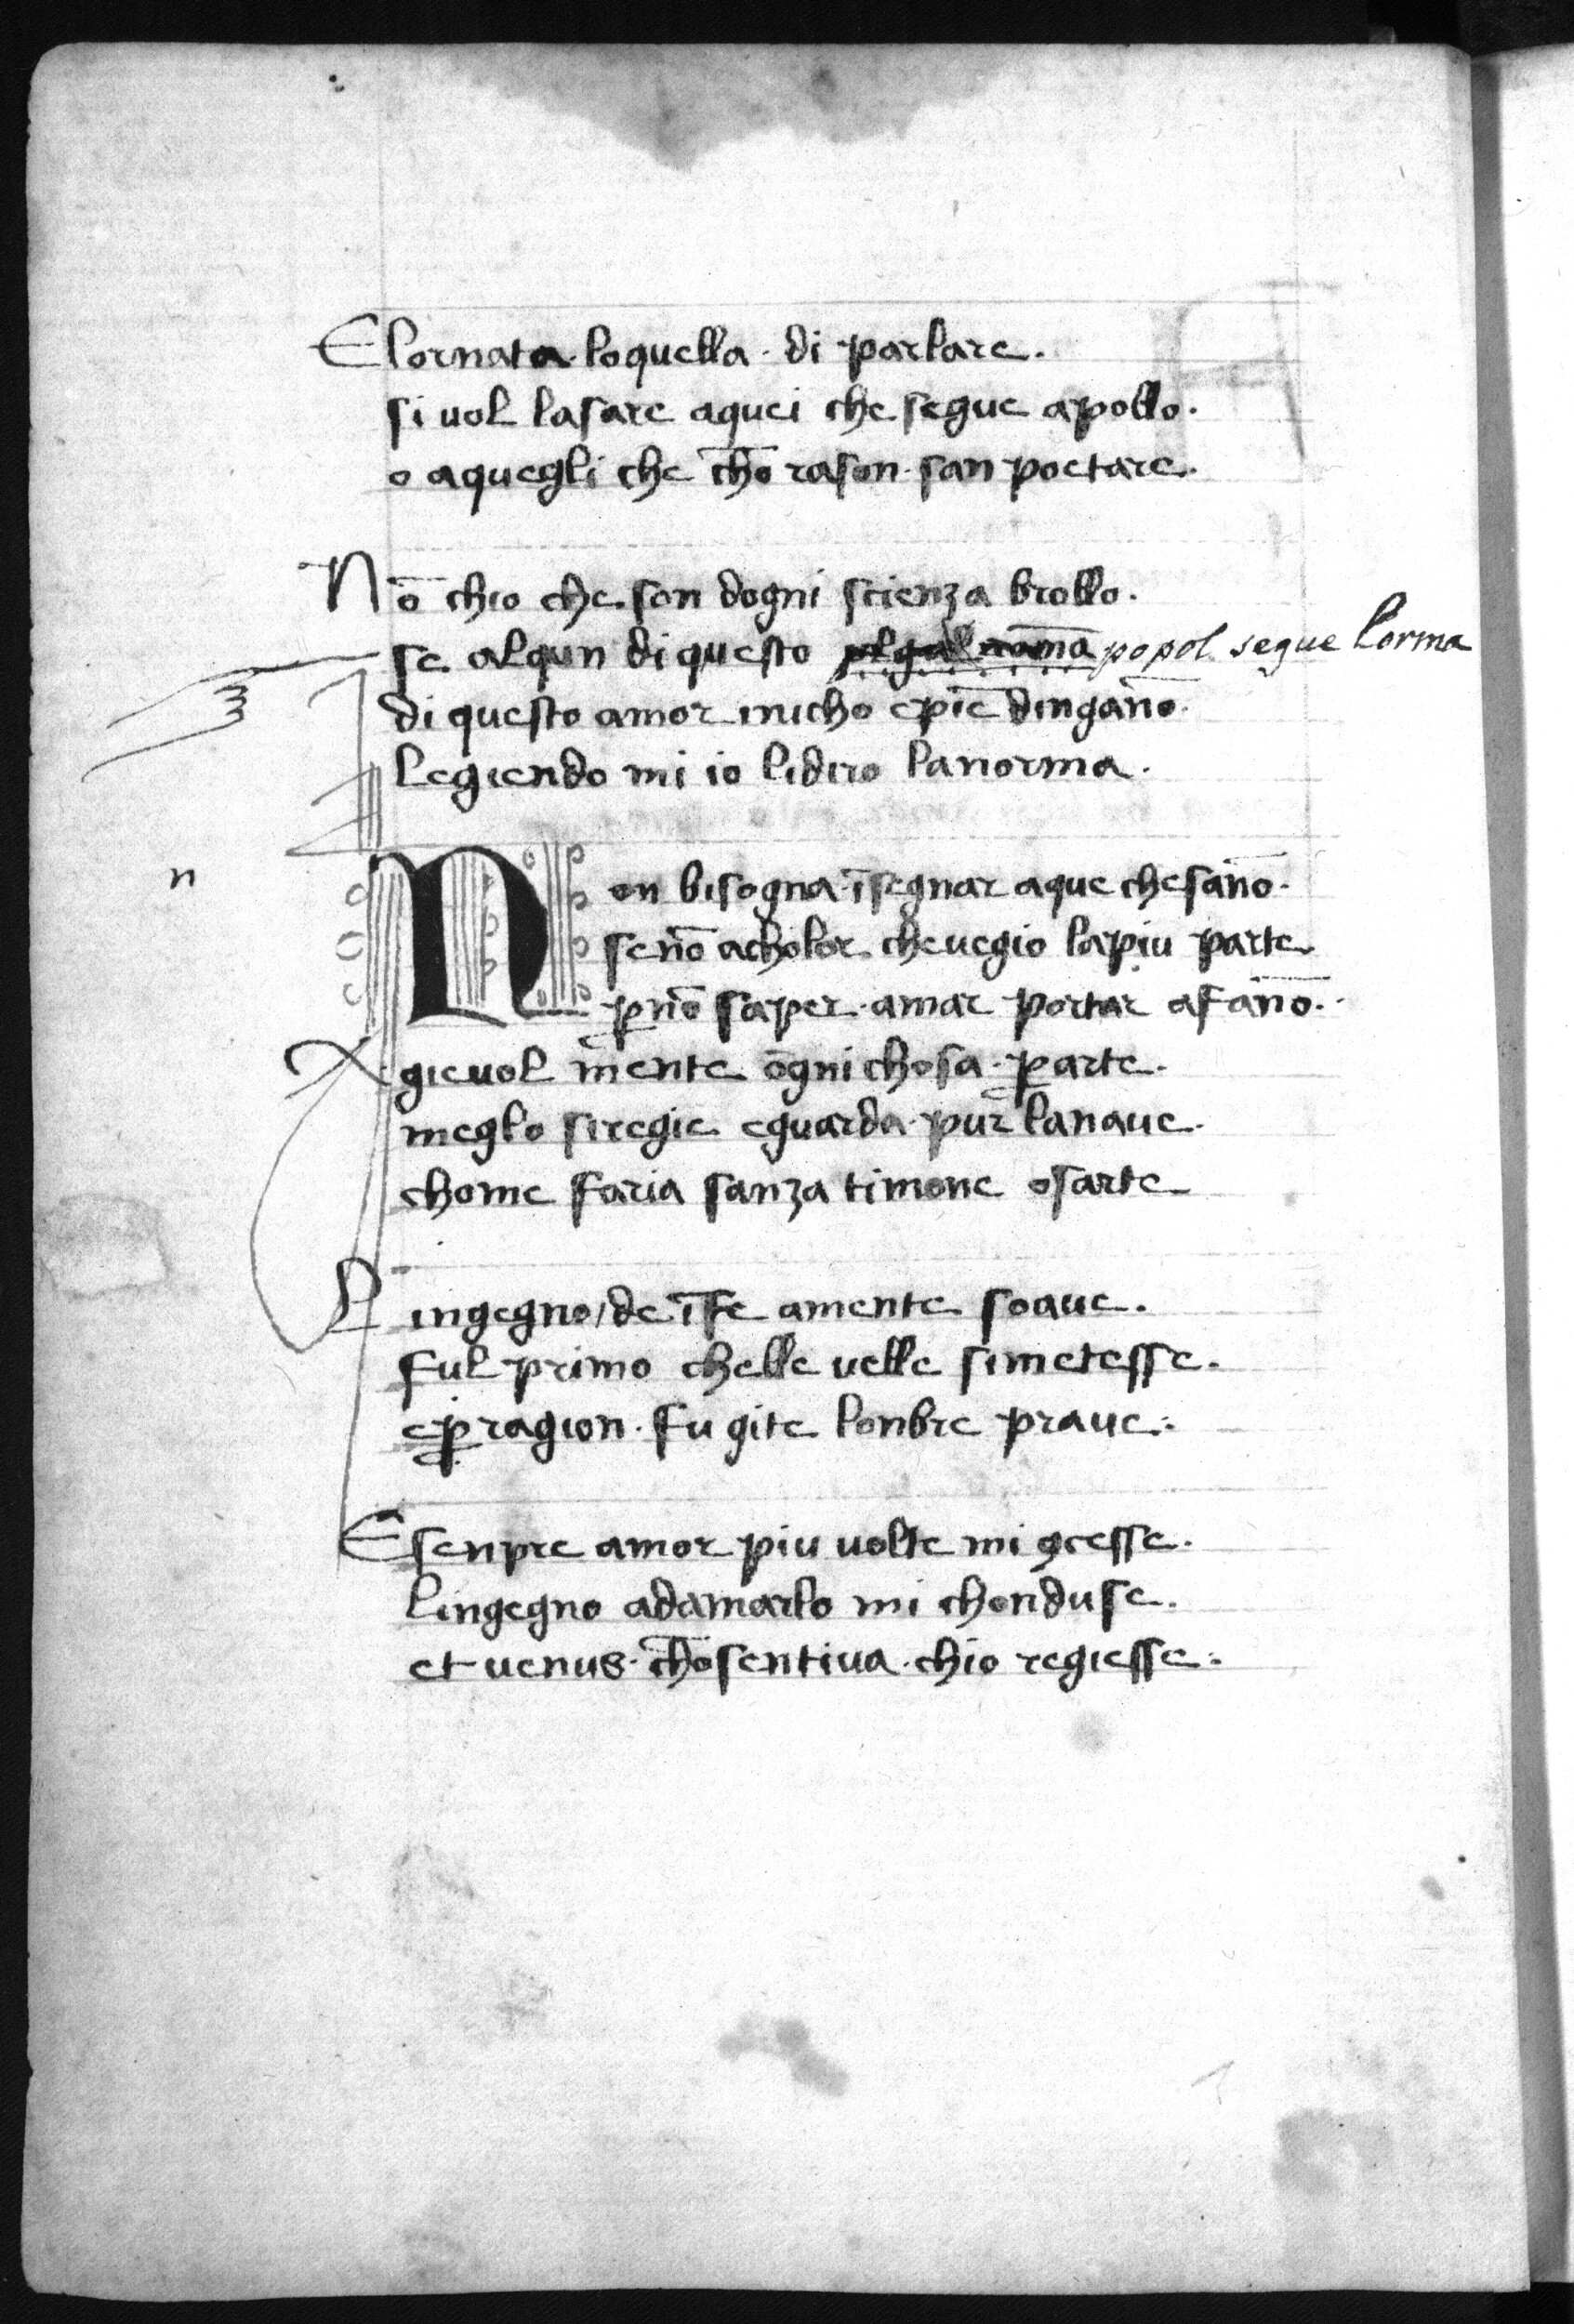 Elornata·loquella·di parlare.
si uol lasare aquei che segue apollo.
o aquegli che chō rason·san poetare.
Nō chio che son dogni scienza brollo.
se alqun di questo popol segue lorma
di questo amor inicho epiē dingāno.
legiendo mi io lidiro lanorma.
n
Non bisogna·īsegnar aque che sāno.
se nō acholor che uegio lapiu parte
ꝑ nō saper·amar portar afāno.
Agieuol mente ōgni chosa·ꝑarte.
meglo siregie eguarda·pur lanaue.
chome faria sanza timone osarte
Lingegno/de īfe amente soaue.
ful primo chelle uelle simetesse.
eꝑ ragion·fu gite lonbre praue:
Esenpre amor piu uolte mi gcesse.
lingegno adamarlo mi chonduse.
et uenus·chōsentiua·chio regiesse: